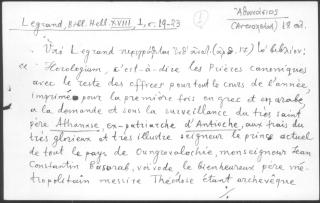 Legrand, Bibl. Hell. XVIII, 1, σ. 19-23
Ἀθανάσιος
18 αἰ.
Ὑπὸ Legrand περιγράφεται
" Horologium, c'est-à-dire les Prières canoniques
avec le reste des offices pour tout le cours de l'année,
imprimée pour la première fois en grec et en arabe,
a la demande et sous la surveillance du très saint
père Athanase, ex-patriarche d'Antioche, aux frais du
très glorieux et très illustre seigneur le prince actuel
de tout le pays de Oungrovalachie, monseigneur Jean
Constantin Basarab, voïvode, le bienheureux père mé-
tropolitain messire Théodose étant archevêque